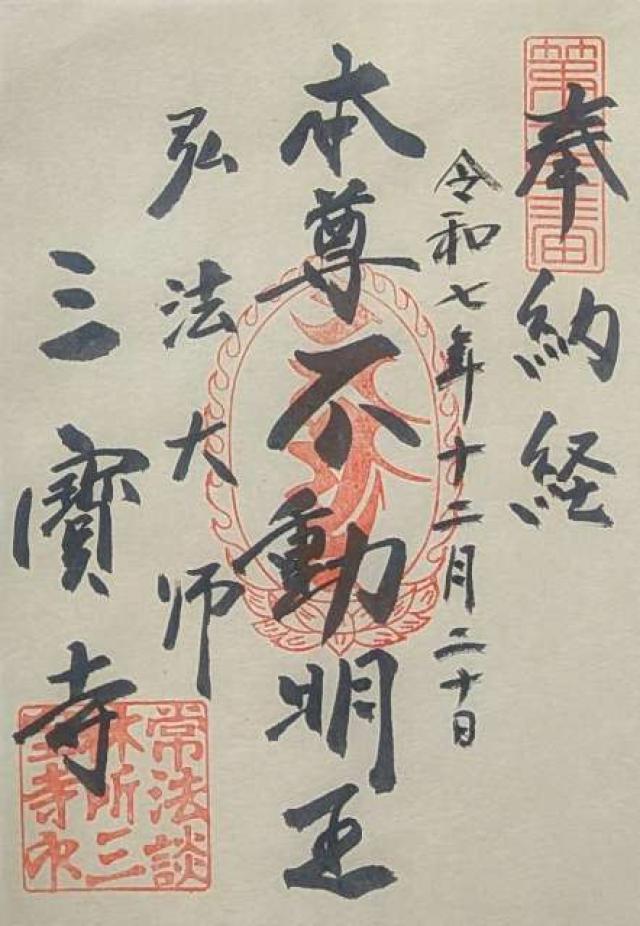 奉納経
令和七年十二月二十日
本尊不動明王
弘法大師
三寳寺
常法談
林所三
宝寺印